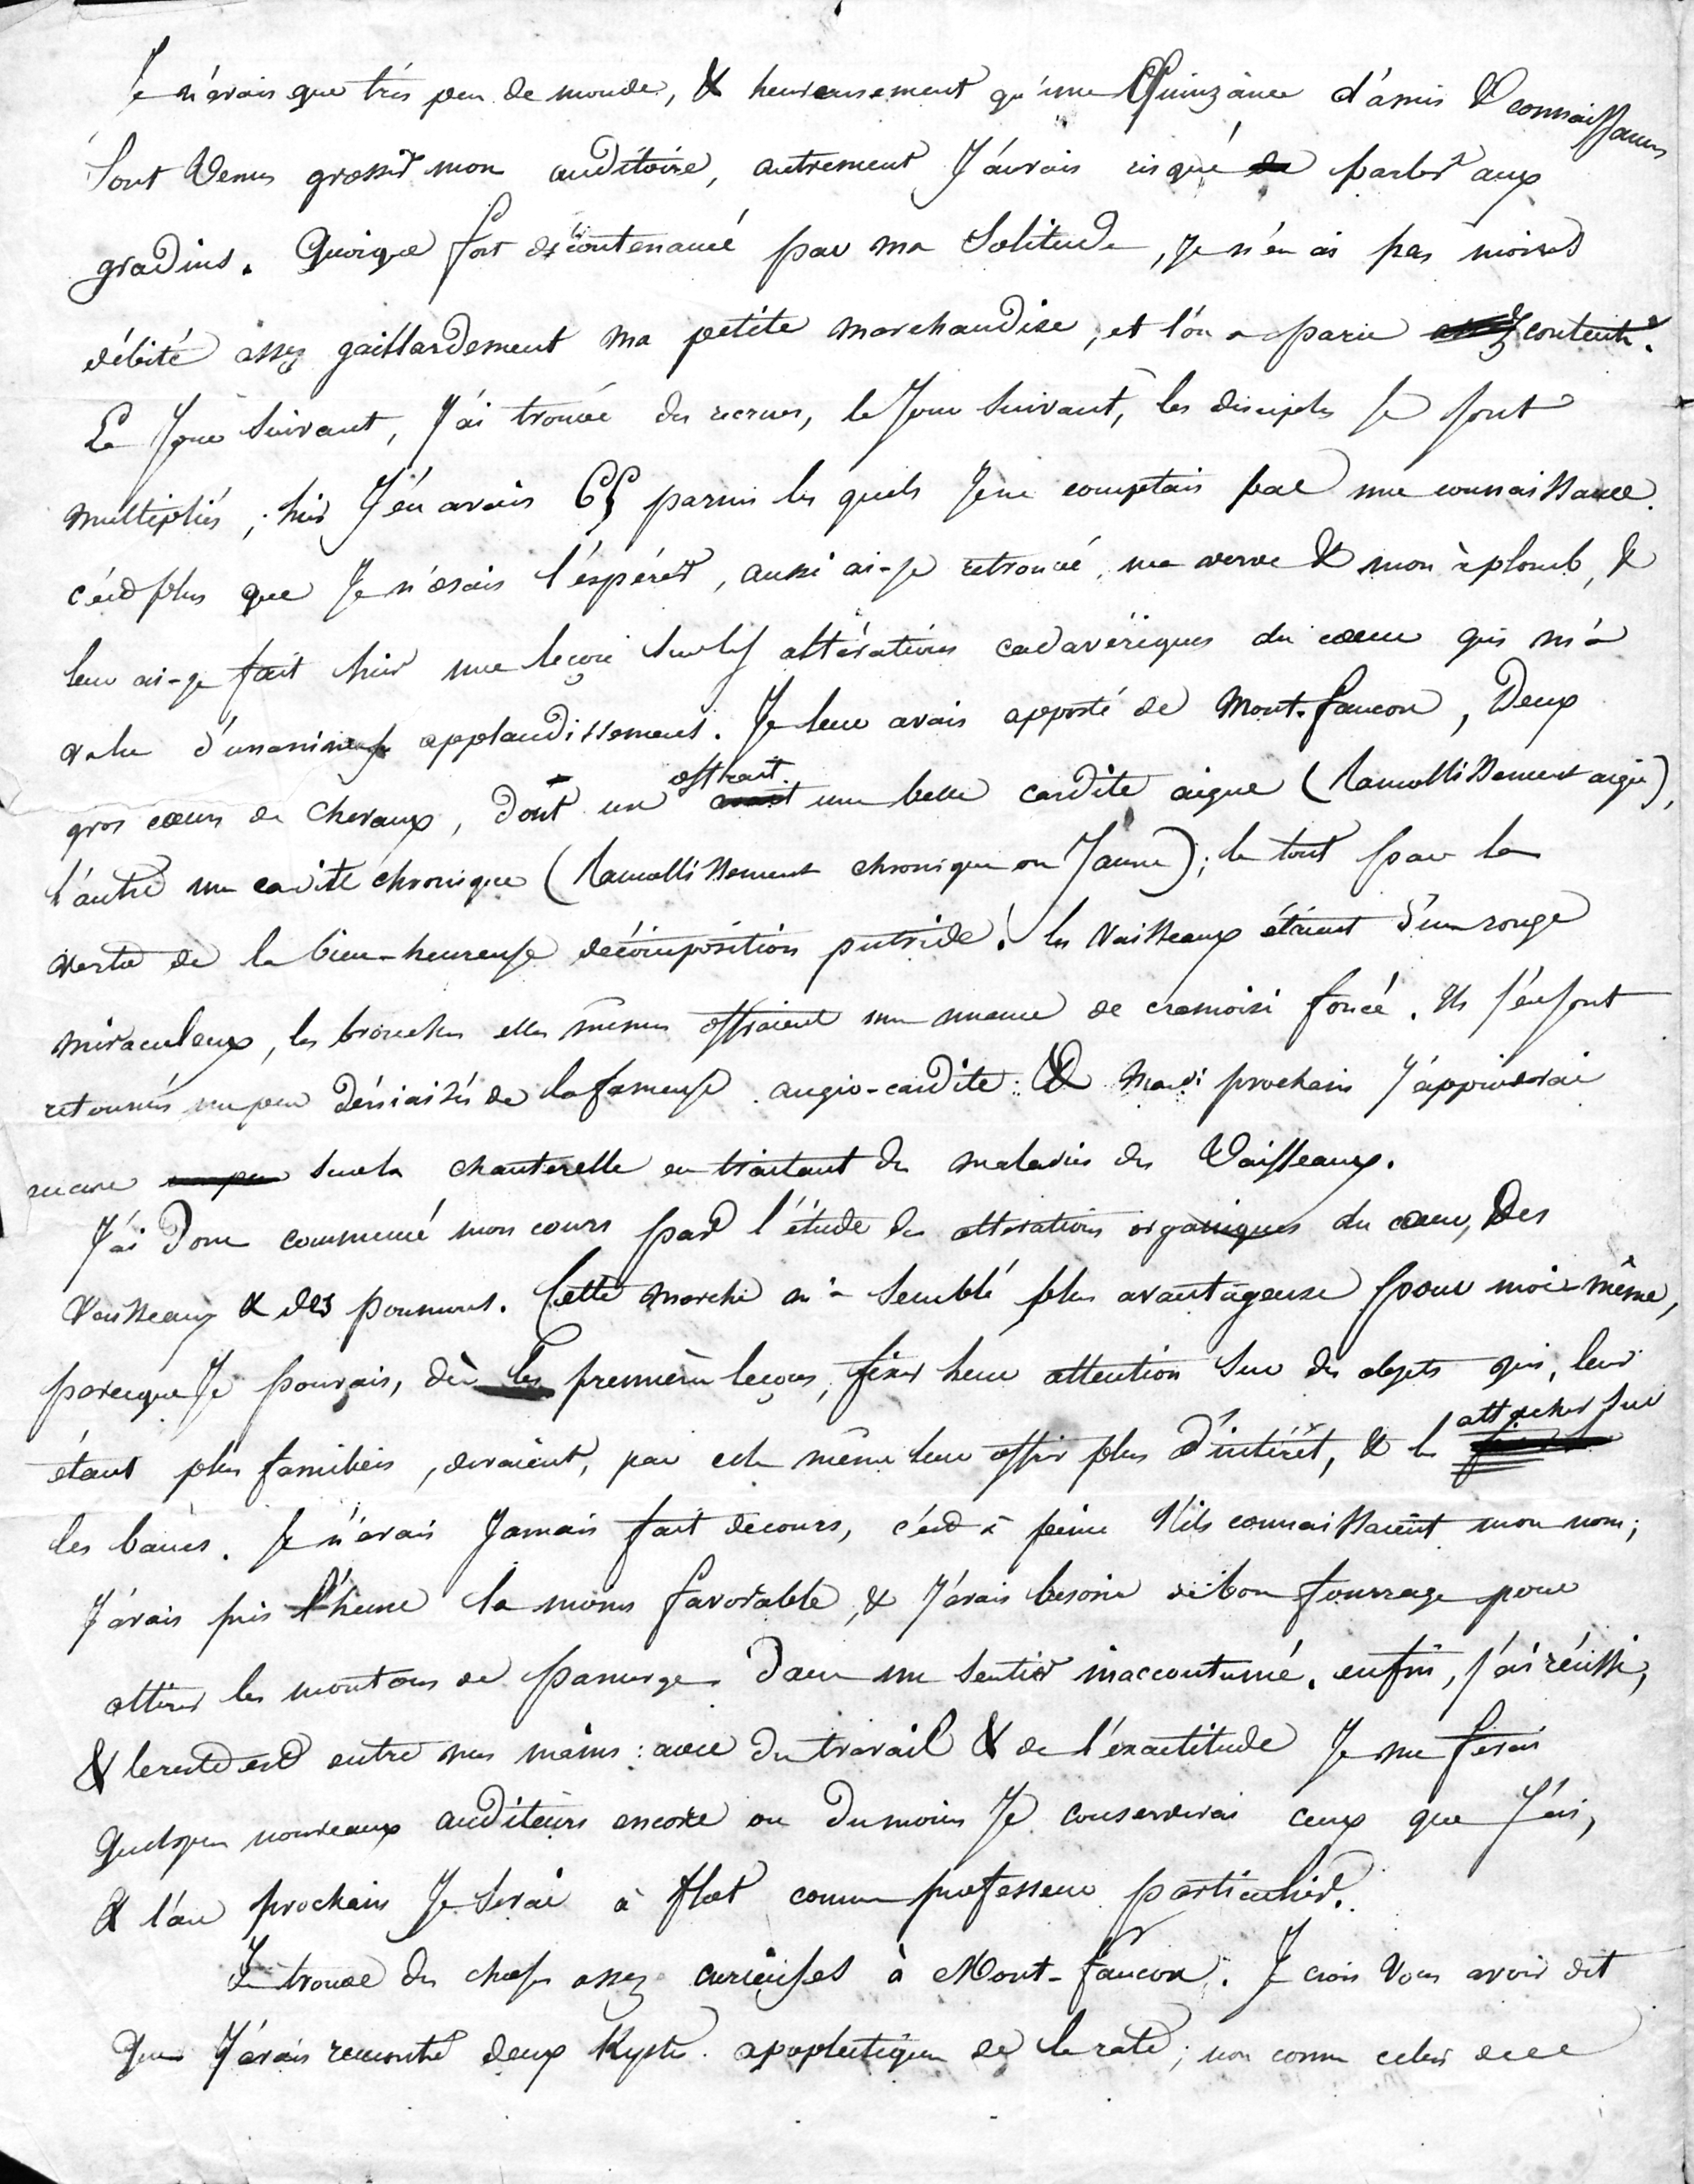 Je n'avais que très peu de monde, & heureusement qu'une Quinzaine d'amis & connaissances
sont venus grossir mon auditoire, autrement J'aurais risqué de parler aux
gradins. Quoique fort décontenancé par ma Solitude, Je n'en ai pas moins
débité assez gaillardement ma petite marchandise, et l'on a paru assez content.
Le Jour suivant, J'ai trouvé des recrues, le Jour suivant, les disciples se sont
multipliés; hier J'en avais parmi les quels Je ne comptais pas une connaissance.
c'est plus que Je n'osais l'espérer, aussi ai-je retrouvé ma verve & mon àplomb, &
leur ai-je fait hier une leçon sur les altérations cadavériques du cœur qui m'a
valu d'unanimes applaudissements. Je leur avais apporté de Mont-faucon, Deux
gros cœurs de chevaux, dont un avait offrait une belle cardite aigue (Ramollissement aigu),
l'autre une cardite chronique (Ramollissement chronique ou Jaune); le tout par la
vertu de la bien-heureuse décomposition putride! les vaisseaux étaient d'un rouge
miraculeux, les bronches elles mêmes offraient une nuance de cramoisi foncé. Ils s'en sont
retournés un peu déniaisés de la fameuse angio-cardite: & Mardi prochain J'appuierai
encore un peu sur la chanterelle en traitant des maladies des Vaisseaux.
J'ai Donc commencé mon cours par l'étude des altérations organiques du cœur, des
Vaisseaux & des poumons. Cette marche m'a semblé plus avantageuse pour moi-même,
parceque Je pouvais, dès les premières leçons, fixer leur attention sur des objets qui, leur
étant plus familiers, devaient, par cela même leur offrir plus d'intérêt, & les attacher sur
les bancs. Je n'avais Jamais fait de cours, c'est à peine s'ils connaissaient mon nom;
J'avais pris l'heure la moins favorable, & J'avais besoin de bon fourrage pour
attirer les moutons de panurge dans un sentier inaccoutumé. enfin, j'ai réussi,
& le reste est entre mes mains: avec du travail & de l'exactitude Je me ferai
quelques nouveaux auditeurs encore ou du moins Je conserverai ceux que J'ai,
& l'an prochain Je serai à flot comme professeur particulier.
Je trouve des choses assez curieuses à Mont-faucon. Je crois Vous avoir dit
Que J'avais rencontré deux Kystes apoplectiques de la rate; non comme celui de